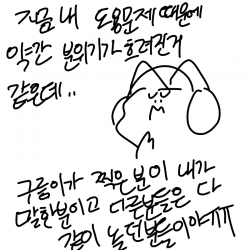 지금 내 도용문제 때문에
약간 분위기가 흐려진거
같은데..
구름이가 찍은분이 내가
말한분이고 다른분들은 다
같이 놀던분들이야ㅠㅠ